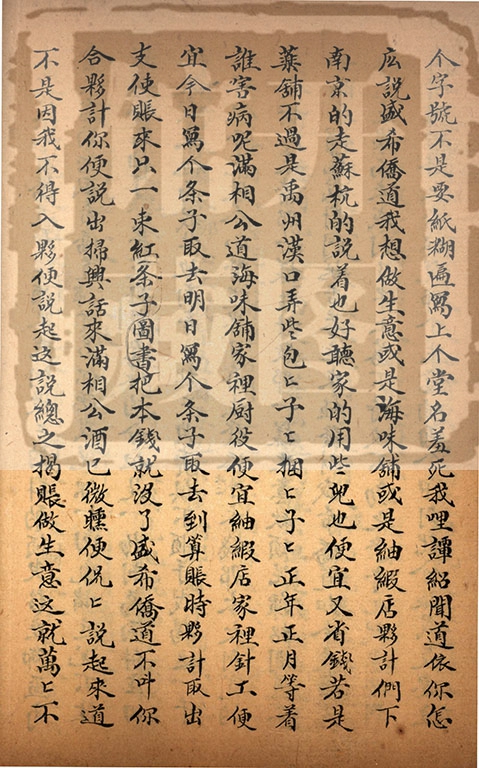 个字號不是要紙糊匾寫上个堂名羞死我哩譚紹聞道依你怎
庅説盛希僑道我想做生意或是海味舖或是紬緞店夥計們下
南京的走蘇杭的説着也好聽家的用些兠也便宜又省錢若是
藥舖不過是禹州漢口弄些包匕子匕捆匕子匕正年正月等着
誰害病呢滿相公道海味舖家裡厨役便宜紬緞店家裡針工便
宜今日寫个条子取去明日寫个条子取去到算賬時夥計取出
支使賬來只一束紅条子圖書把本錢就没了盛希僑道不呌你
合夥計你便説出掃興話來滿相公酒已微醺便侃匕説起來道
不是因我不得入夥便説起这説總之揭賬做生意这就萬匕不